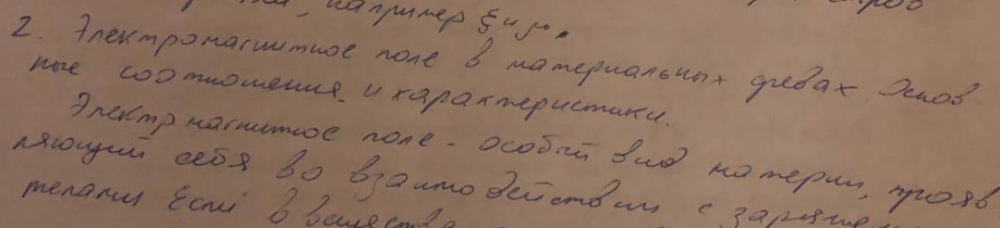 например ξ и μ.
2. Электромагнитное поле в материальных средах. Основ
ные соотношения и характеристики.
Электрмагнитное поле - особый вид материи, прояв
ляющий себя во взаимодействии с
телами Если в